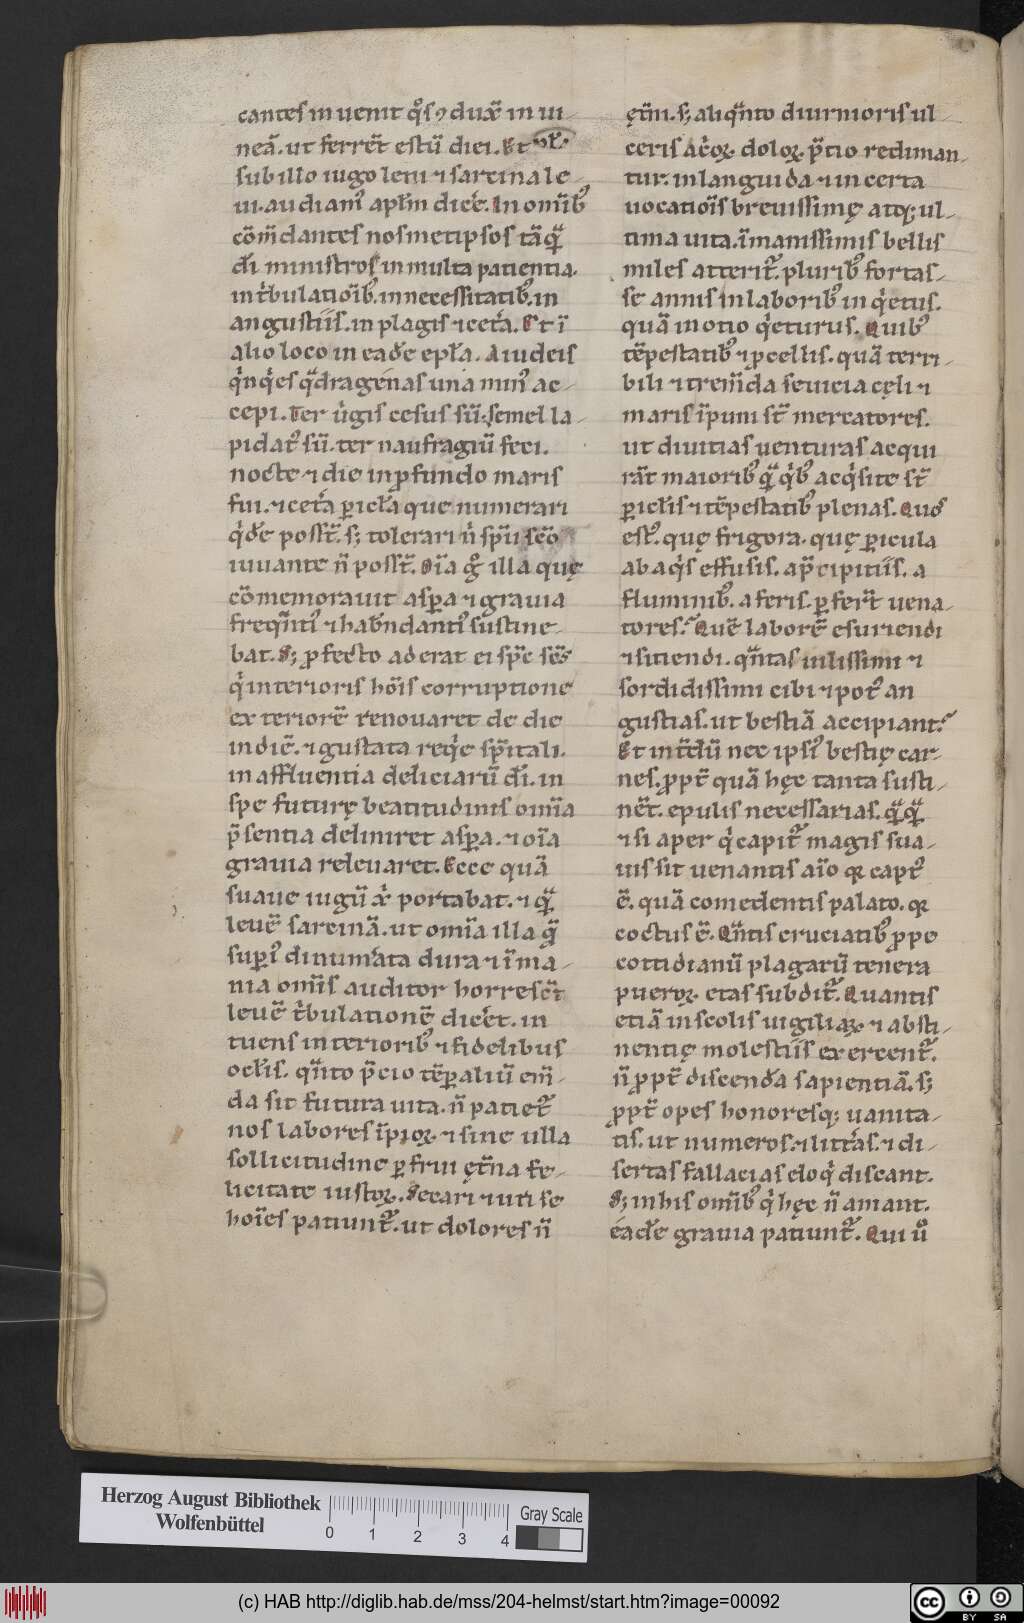 cantes inuenit qͦs ⁊ dux̅ in ui-
neā. ut ferrēt estū diei. Et uł.
sub illo iugo leni ⁊ sarcina le-
ui. audiam᷒ apłm dicc̅e. In omib᷒
cōm̅dantes nosmetipsos tāq̅
dī ministros in multa patientia.
in tⁱbulatioīb᷒. in necessitatib᷒. in
angustiis. in plagis ⁊ cet̅a. Et ī
alio loco in ead̅e epła. A iudeis
qⁱnqⁱes qᵃdragenas una min᷒ ac-
cepi. Ter uⁱgis cesus sū. semel la-
pidat᷒ sū. ter naufragiū feci.
nocte ⁊ die in ꝓfundo maris
fui. ⁊ cet̅a ꝑicła que numerari
qⁱd̅e poss̅t. s; tolerari nⁱ sp̅u sc̅o
iuuante n̅ poss̅t. Oīa gͦ illa quę
cōmemorauit aspꝑa ⁊ grauia
freqᵃnti᷒ ⁊ habundanti᷒ sustine-
bat. S; ꝓfecto aderat ei sp̅c sc̅s
qⁱ interioris hōīs corruptione
exteriorē renouaret de die
in diē. ⁊ gustata reqⁱe sp̅itali.
in affluentia deliciarū dī. in
spe futurę beatitudinis omīa
p̅sentia deliniret aspꝑa. ⁊ oīa
grauia releuaret. Ecce quā
suaue iugū xⁱ portabat. ⁊ q̅
leuē sarcinā. ut omīa illa q̅
supꝑi᷒ dinumᵃta dura ⁊ īma-
nia omīs auditor horresc̅t
leuē tⁱbulationē dic̅et. in
tuens interiorib᷒ ⁊ fidelibus
ocłis. qᵃnto p̅cio tēꝑaliū em̅-
da sit futura uita. n̅ patiet᷑
nos labores īpioꝝ. ⁊ sine ulla
sollicitudine ꝑfrui ęt̅na fe-
licitate iustoꝝ. Secari ⁊ uri se
hoīes patiunt᷑. ut dolores n̅
ęt̅ni. s; aliqᵃnto diurnioris ul-
ceris ac̅oꝝ doloꝝ p̅tio rediman-
tur. in languida ⁊ incerta
uocatioīs breuissimę atq; ul-
tima uita. īmanissimis bellis
miles atterit᷑. plurib᷒ fortas-
se annis in laborib᷒ inqⁱetus.
quā in otio qⁱeturus. Quib᷒
tēpestatib᷒ ⁊ ꝓcellis. quā terri-
bili ⁊ trem̅da seuicia cęli ⁊
maris īpuni st̅ mercatores.
ut diuitias uenturas acqui
rāt maiorib᷒ q̅ qⁱb᷒ acqⁱsite st̅
ꝑicłis ⁊ tēpestatib᷒ plenas. Quos
est᷒. quę frigora. quę ꝑicula
ab aqⁱs effusis. a p̅cipitiis. a
fluminib᷒. a feris. ꝑfer̅t uena-
tores? Quē laborē esuriendi
⁊ sitiendi. qᵃntas uilissimi ⁊
sordidissimi cibi ⁊ pot᷒ an
gustias. ut bestiā accipiant?
Et int̅dū nec ipsi᷒ bestię car-
nes. ꝓpt̅ quā hęc tanta susti-
n̅et. epulis necessarias. q̅q̅
⁊ si aper qⁱ capit᷑ magis sua-
uis sit uenantis aīo qꝛ capt᷒
ē. quā comedentis palato. qꝛ
coctus ē. Qᵃntis cruciatib᷒ ꝓpe
cottidianū plagarū tenera
pueroꝝ etas subdit᷑. Quantis
etiā in scolis uigiliaꝝ ⁊ absti-
nentię molestiis exercent᷑.
n̅ ꝓpt̅ discend̅a sapientiā. s;
ꝓpt̅ opes honoresq; uanita-
tis. ut numeros. ⁊ litt̅as. ⁊ di-
sertas fallacias eloqⁱ discant.
S; in his omīb᷒ qⁱ hęc n̅ amant.
ead̅e grauia patiunt᷑. Qui uͦ
Herzog August Bibliothek
Wolfenbüttel
0 1 2 3 4
Gray Scale
(c) HAB http://diglib.hab.de/mss/204-helmst/start.htm?image=00092
cc BY SA